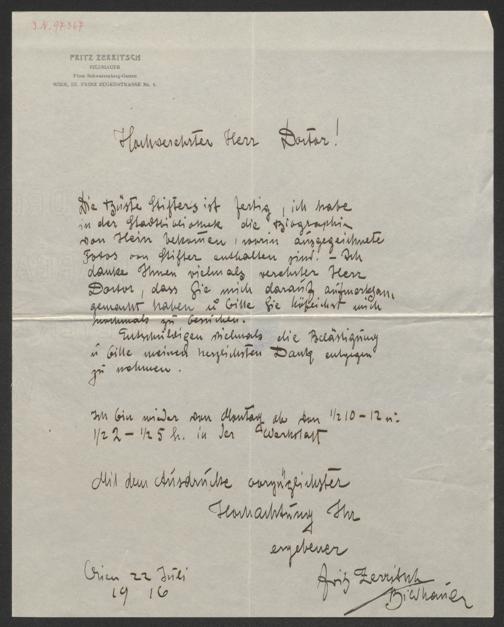 J.N. 97367
FRITZ ZERRITSCH
BILDHAUER
Fürst Schwarzenberg-Garten
WIEN, III. PRINZ EUGENSTRASSE Nr. 1.
Hochverehrter Herr Doctor!
Die Büste Stifters ist fertig, ich habe
in der Stadtbibliothek die Biographie
von Hein bekomen, worin ausgezeichnete
Fotos von Stifter enthalten sind. – Ich
danke Ihnen vielmals verehrter Herr
Doctor, dass Sie mich darauf aufmerksam
gemacht haben u bitte Sie höflichst mich
nochmals zu besuchen.
Entschuldigen vielmals die Belästigung
u bitte meinen herzlichsten Dank entgegen
zu nehmen.
Ich bin wieder von Montag ab von ½10–12 u.
½2–½5 h. in der Werkstatt
Mit dem Ausdrucke vorzüglichster
Hochachtung Ihr
ergebener
Wien 22 Juli
1916
Fritz Zerritsch
Bildhauer